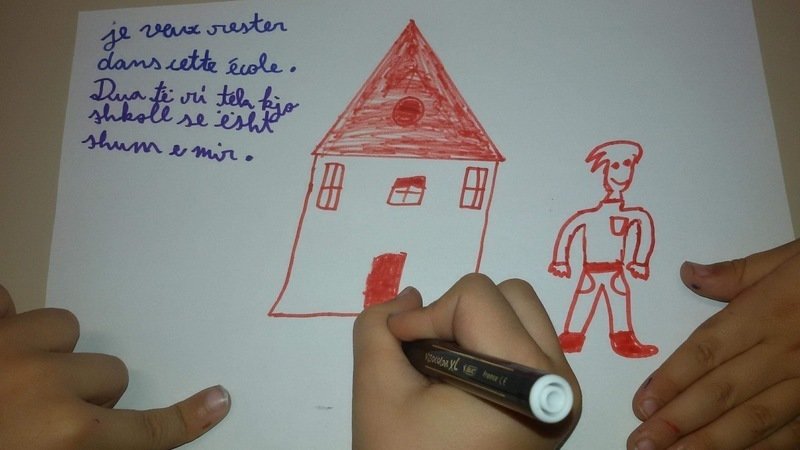 je veux rester
dans cette école.
Dua të rri tek kjo
shkoll se ësht
shum e mir.
visacolor XL BIC France CE